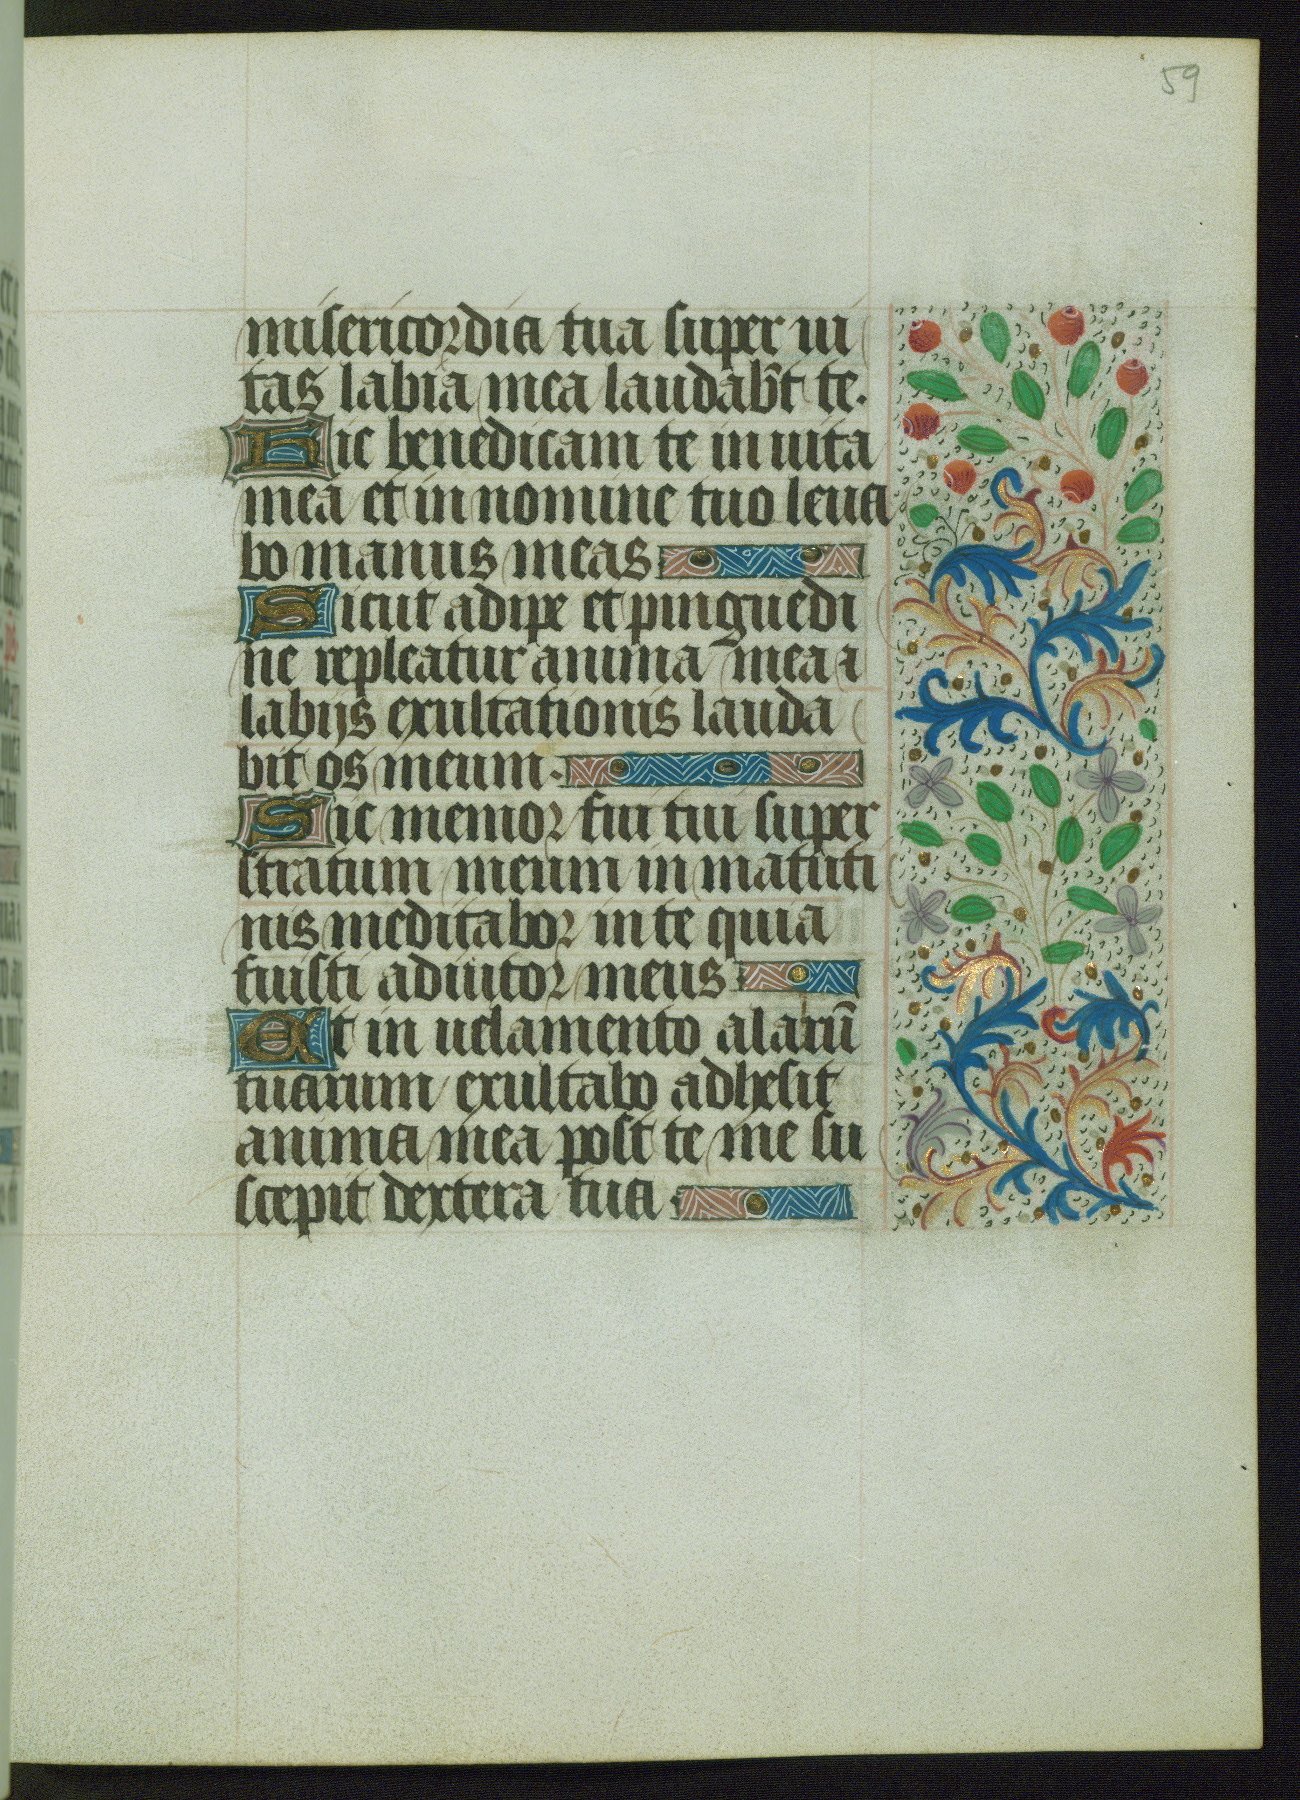 59
misericordia tua super ui
tas labia mea laudab̅t te.
Hic benedicam te in uita
mea et in nomine tuo leua
bo manus meas
Sicut adipe et pinguedi
ne repleatur anima mea a
labijs exultationis lauda
bit os meum.
Sic memor fui tui super
stratum meum in matuti
nis meditabor in te quia
fuisti adiutor meus
Et in uelamento alaru̅
tuarum exultabo adhesit
anima mea post te me su
scepit dextera tua